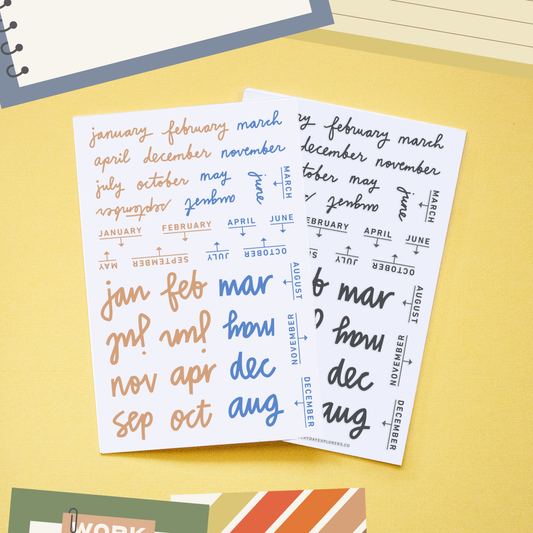 january february march
april december november
july october may june MARCH
september august
JANUARY FEBRUARY APRIL JUNE
MAY SEPTEMBER JULY OCTOBER
jan feb mar AUGUST
jul jun may NOVEMBER
nov apr dec
sep oct aug DECEMBER
ry february march
december november
tober may june MARCH
august
EBRUARY APRIL JUNE
JULY OCTOBER
b mar AUGUST
may NOVEMBER
dec
aug DECEMBER
WORK